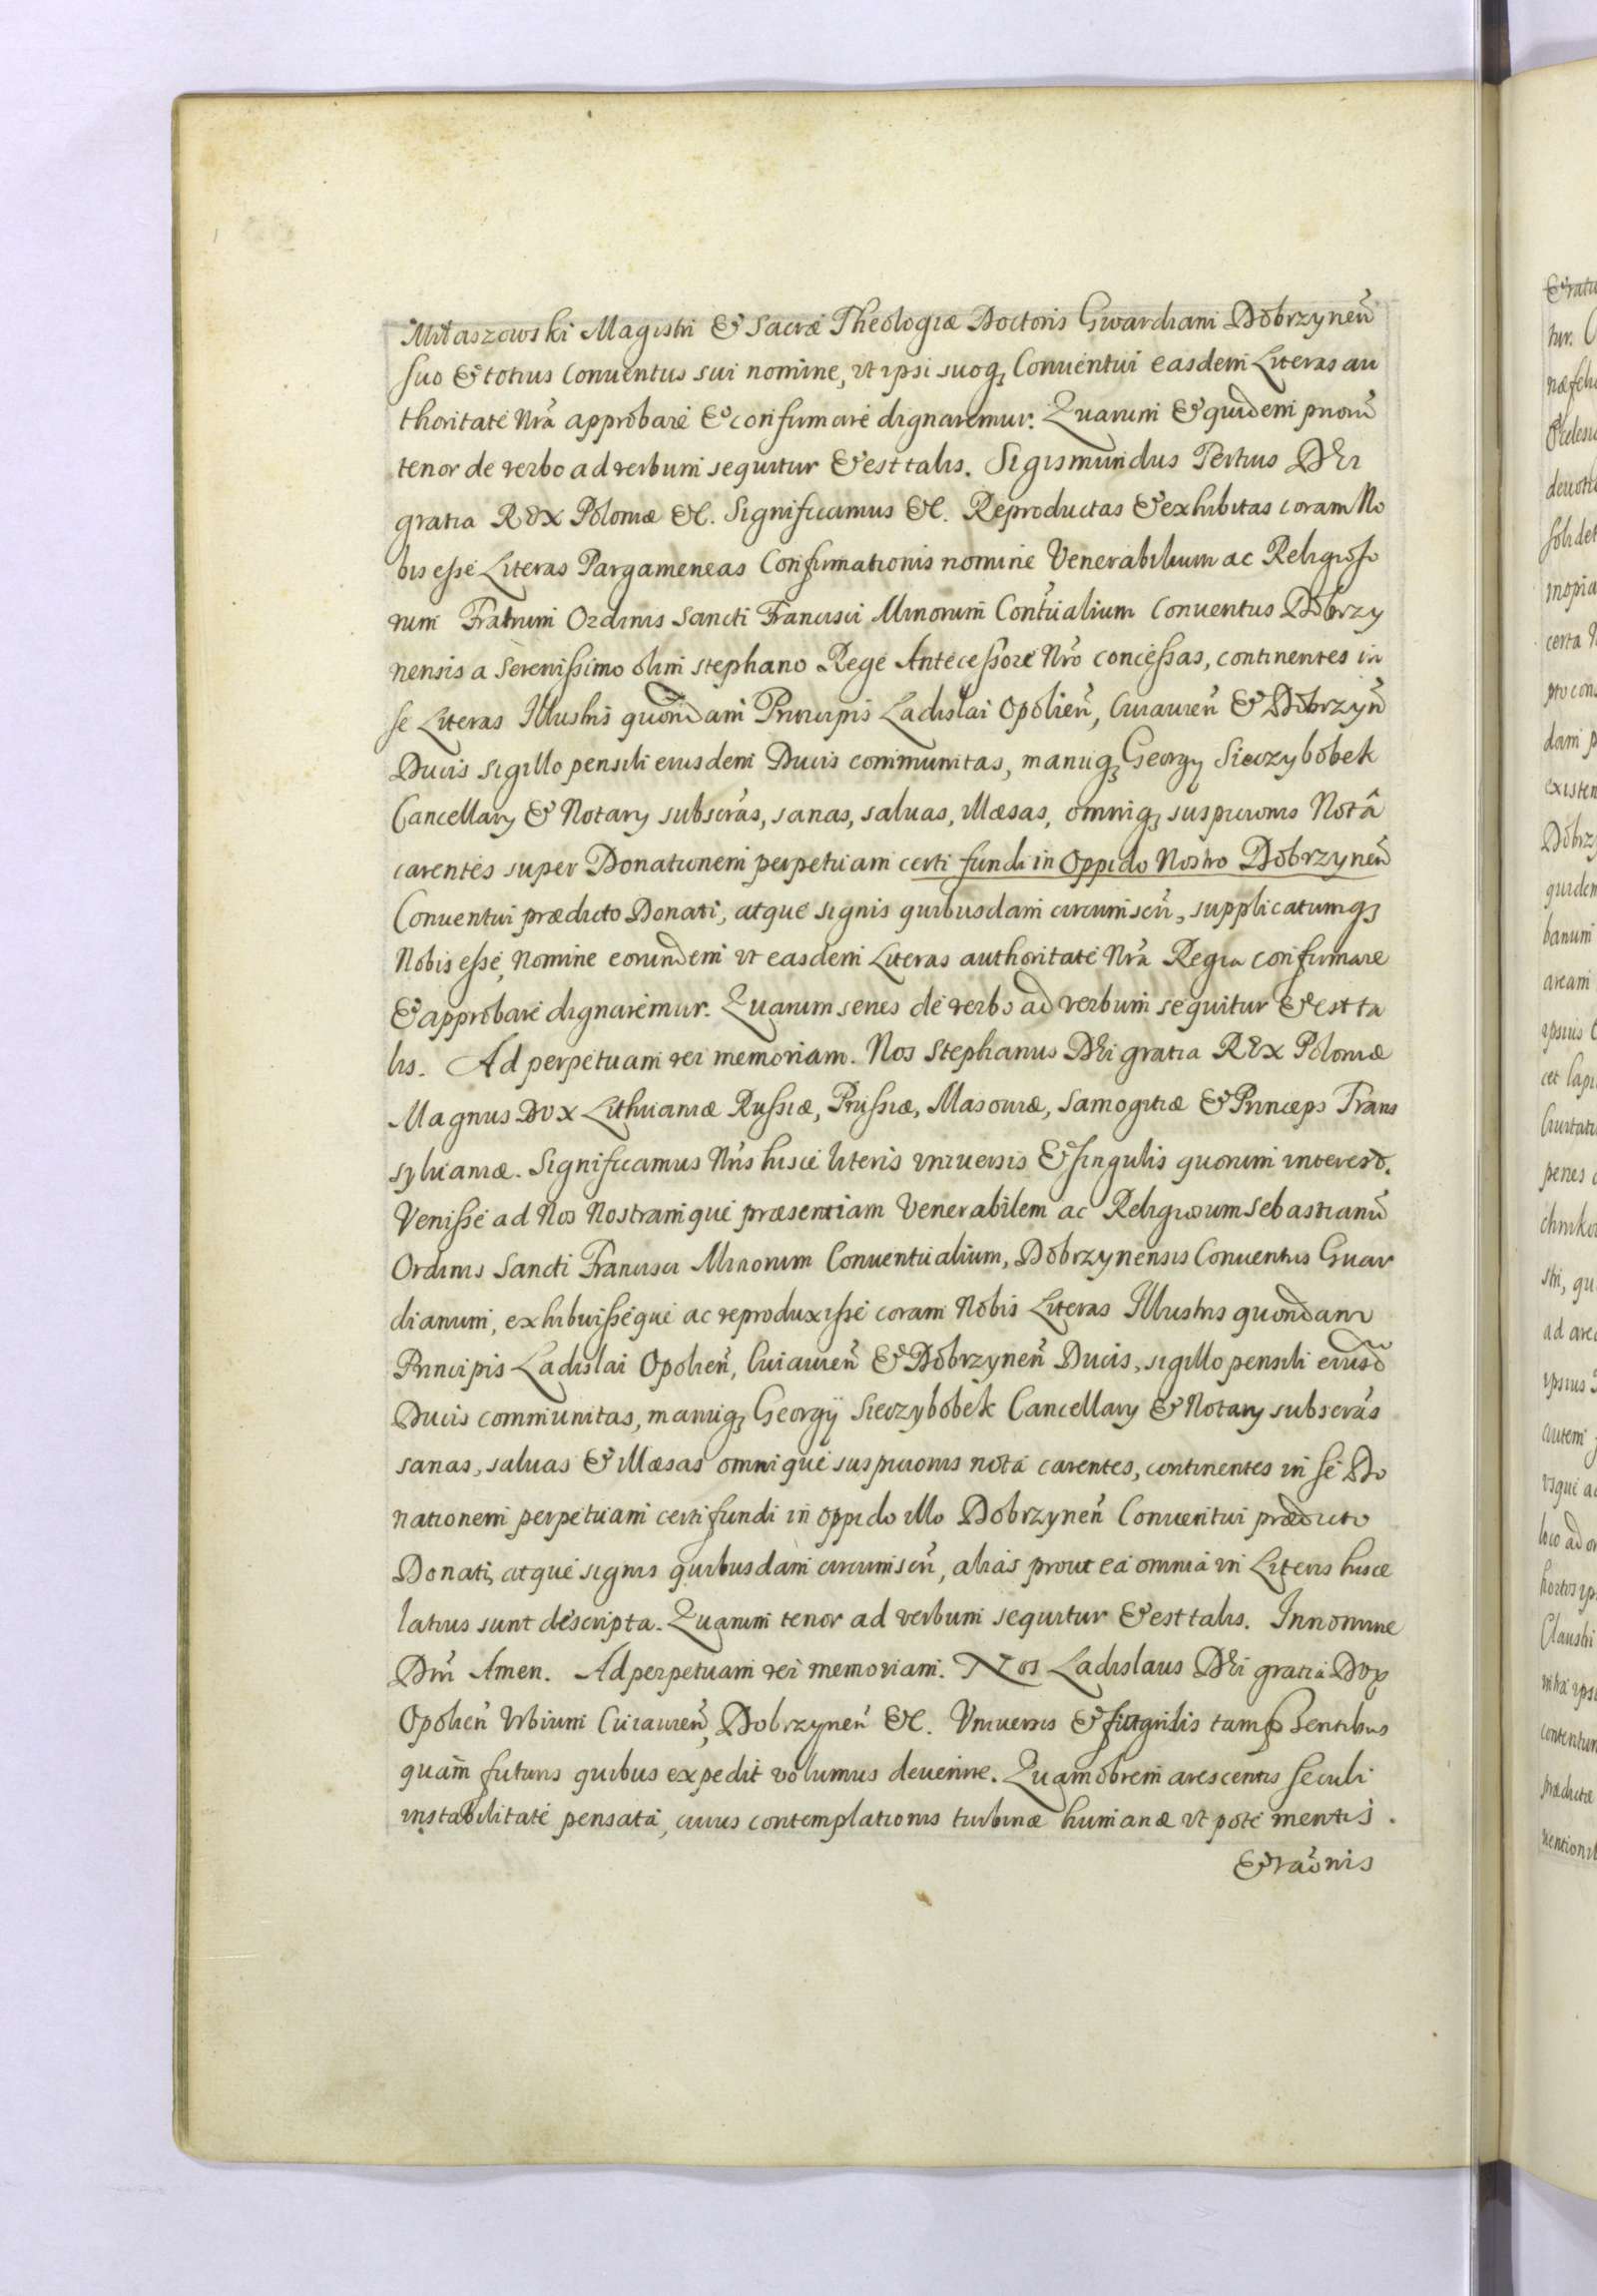 Miłaszowski Magistri & Sacræ Theologiæ Doctoris Gwardiani Dobrzyneñ
suo & totius Conuentus sui nomine, vt ipsi suoq; Conuentui easdem Literas au
thoritate Nrã approbare & confirmare dignaremur. Quarum & quidem priorũ
tenor de verbo ad verbum sequitur & est talis. Sigismundus Tertius DEI
gratia REX Poloniæ &c. Significamus &c. Reproductas & exhibitas coram No
bis esse Literas Pargameneas Confirmationis nomine Venerabilium ac Religioso
rum Fratrum Ordinis Sancti Francisci Minorum Contũalium Conuentus Dobrzy
nensis a Serenissimo olim Stephano Rege Antecessore Nrõ concessas, continentes in
se Literas Illustris quondam Principis Ladislai Opolieñ, Cuiauieñ & Dobrzyñ
Ducis sigillo pensili eiusdem Ducis communitas, manuq; Georgy Sieczybobek
Cancellary & Notary subscrãs, sanas, saluas, illæsas, omniq; suspicionis Notâ
carentes super Donationem perpetuam certi fundi in Oppido Nostro Dobrzyneñ
Conuentui prædicto Donati, atque signis quibusdam circumscñ, supplicatumq;
Nobis esse, Nomine eorundem vt easdem Literas authoritate Nrã Regia confirmare
& approbare dignaremur. Quarum series de verbo ad verbum sequitur & est ta
lis. Ad perpetuam rei memoriam. Nos Stephanus DEI gratia REX Poloniæ
Magnus DVX Lithuaniæ Russiæ, Prussiæ, Masouiæ, Samogitiæ & Princeps Trans
syluaniæ. Significamus Nris hisce literis vniuersis & singulis quorum interest.
Venisse ad Nos Nostramque præsentiam Venerabilem ac Religiosum Sebastianũ
Ordinis Sancti Francisci Minorum Conuentualium, Dobrzynensis Conuentus Guar
dianum, exhibuisseque ac reproduxisse coram Nobis Literas Illustris quondam
Principis Ladislai Opolieñ, Cuiauieñ & Dobrzyneñ Ducis, sigillo pensili eiusd̃
Ducis communitas, manuq; Georgÿ Sieczybobek Cancellary & Notary subscrãs
sanas, saluas & illæsas omnique suspicionis nota carentes, continentes in se Do
nationem perpetuam certi fundi in oppido illo Dobrzyneñ Conuentui prædicto
Donati, atque signis quibusdam circumscñ, alias prout ea omnia in Literis hisce
latius sunt descripta. Quarum tenor ad verbum sequitur & est talis. In nomine
Dñi Amen. Ad perpetuam rei memoriam. Nos Ladislaus DEI gratia DVX
Opolieñ Vrbium Cuiauieñ, Dobrzyneñ &c. Vniuersis & singulis tam pñsentibus
quam futuris quibus expedit volumus deuenire. Quamobrem arescentis seculi
instabilitate pensata, cuius contemplationis turbinæ humanæ vt pote mentis.
& raõnis